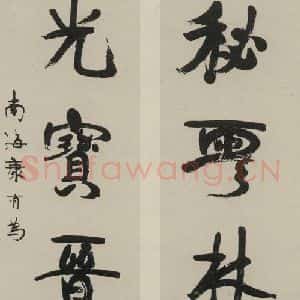 秘
林
光寶晉
南海康有為
Shufawang.CN